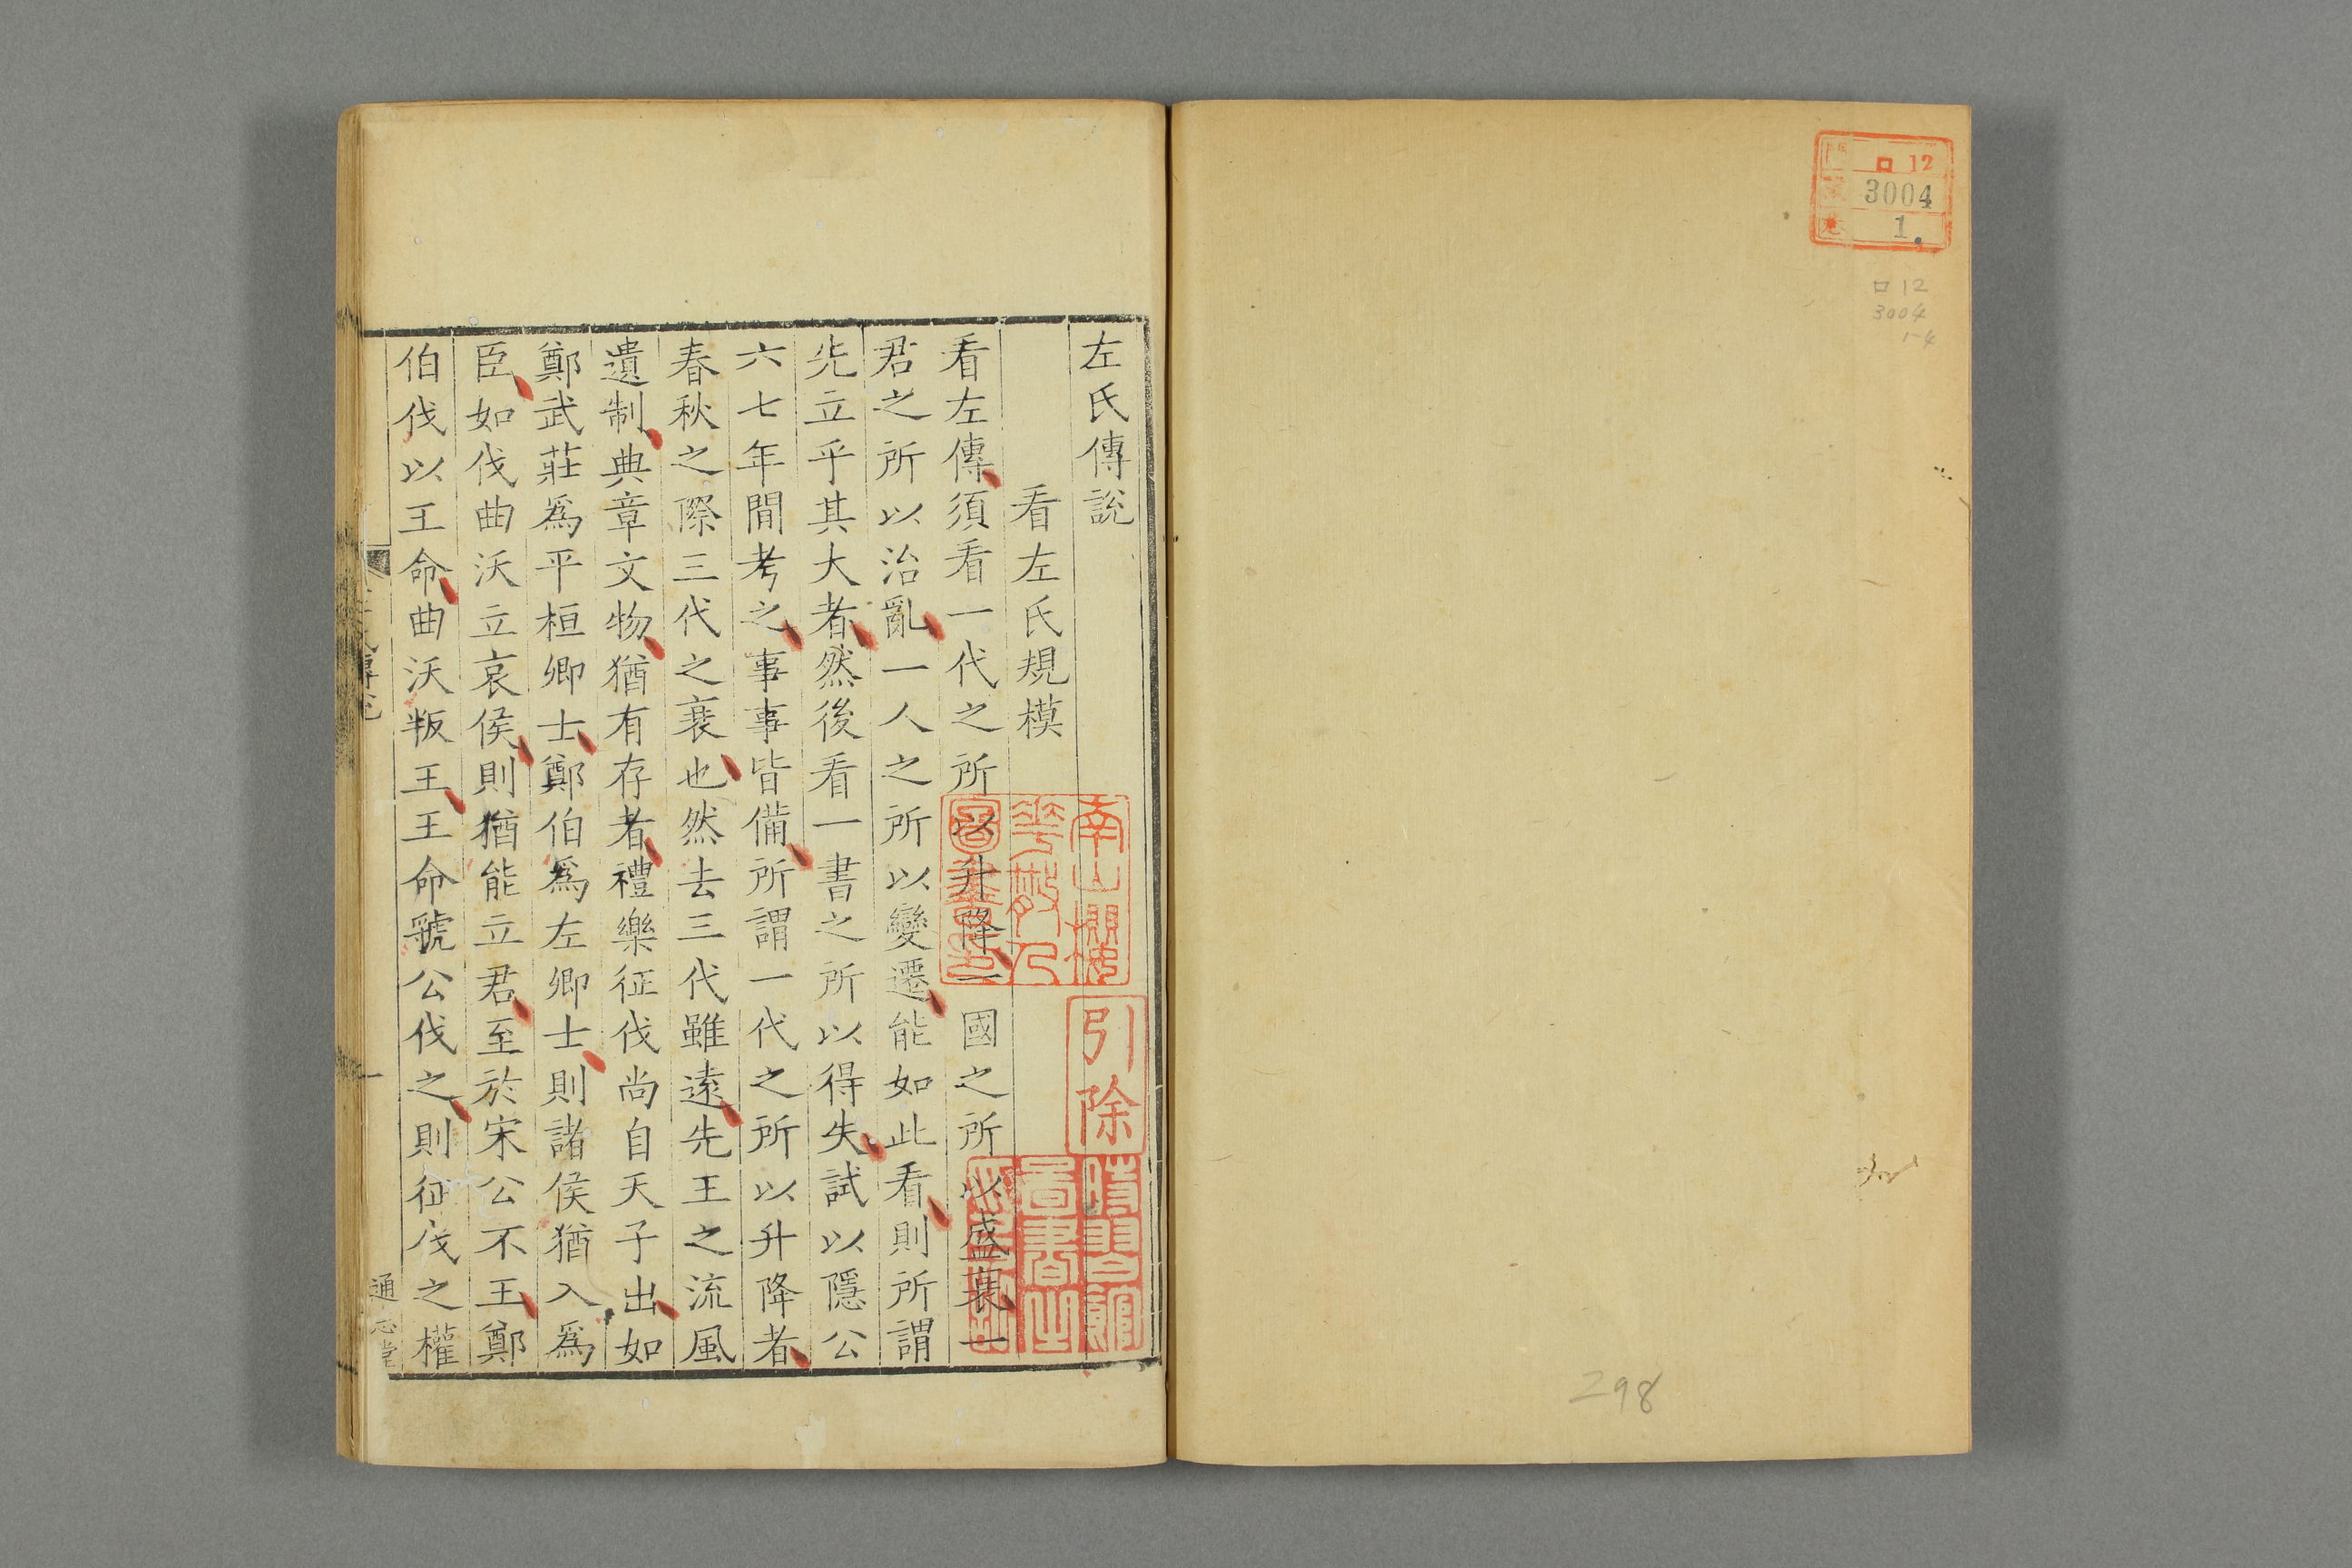 門 ロ 12
3004
巻 1
ロ 12
3004
1-4
298
左氏傳說
看左氏規模
看左傳須看一代之所以升降一國之所以盛衰一
君之所以治亂一人之所以變遷能如此看則所謂
先立乎其大者然後看一書之所以得失試以隱公
六七年間考之事事皆備所謂一代之所以升降者
春秋之際三代之衰也然去三代雖遠先王之流風
遺制典章文物猶有存者禮樂征伐尚自天子出如
鄭武莊爲平桓卿士鄭伯爲左卿士則諸侯猶入爲
臣如伐曲沃立哀侯則猶能立君至於宋公不王鄭
伯伐以王命曲沃叛王王命虢公伐之則征伐之權
通志堂
引除